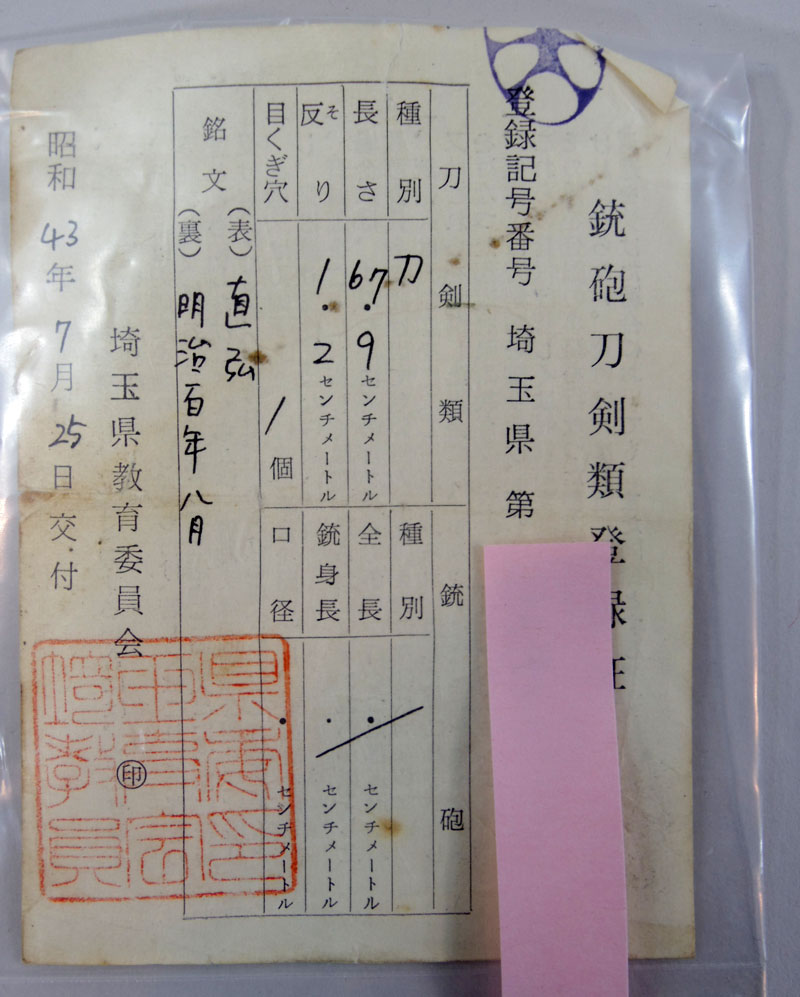 銃砲刀剣類登録証
登録記号番号 埼玉県 第
刀剣類
種別 刀
長さ 67.9センチメートル
反り そ 1.2センチメートル
目くぎ穴 1個
銃砲
種別
全長 . センチメートル
銃身長 . センチメートル
口径 . センチメートル
銘文 (表) 直弘
(裏) 明治百年八月
埼玉県教育委員会 ㊞
昭和43年7月25日交付